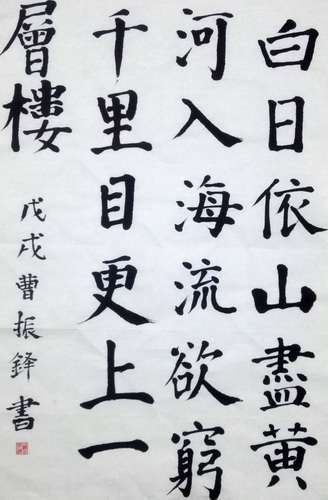 白日依山盡黃
河入海流欲窮
千里目更上一
層樓
戊戌曹振鋒書